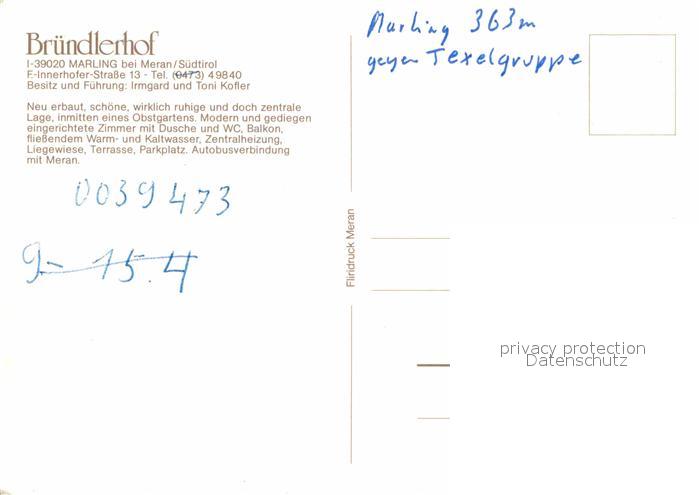 Bründlerhof
I-39020 MARLING bei Meran/Südtirol
F.-Innerhofer-Straße 13 - Tel. (0473) 49840
Besitz und Führung: Irmgard und Toni Kofler
Neu erbaut, schöne, wirklich ruhige und doch zentrale
Lage, inmitten eines Obstgartens. Modern und gediegen
eingerichtete Zimmer mit Dusche und WC, Balkon,
fließendem Warm- und Kaltwasser, Zentralheizung,
Liegewiese, Terrasse, Parkplatz. Autobusverbindung
mit Meran.
0039473
9- 15.4
Fliridruck Meran
Marling 363m
gegen Texelgruppe
privacy protection
Datenschutz